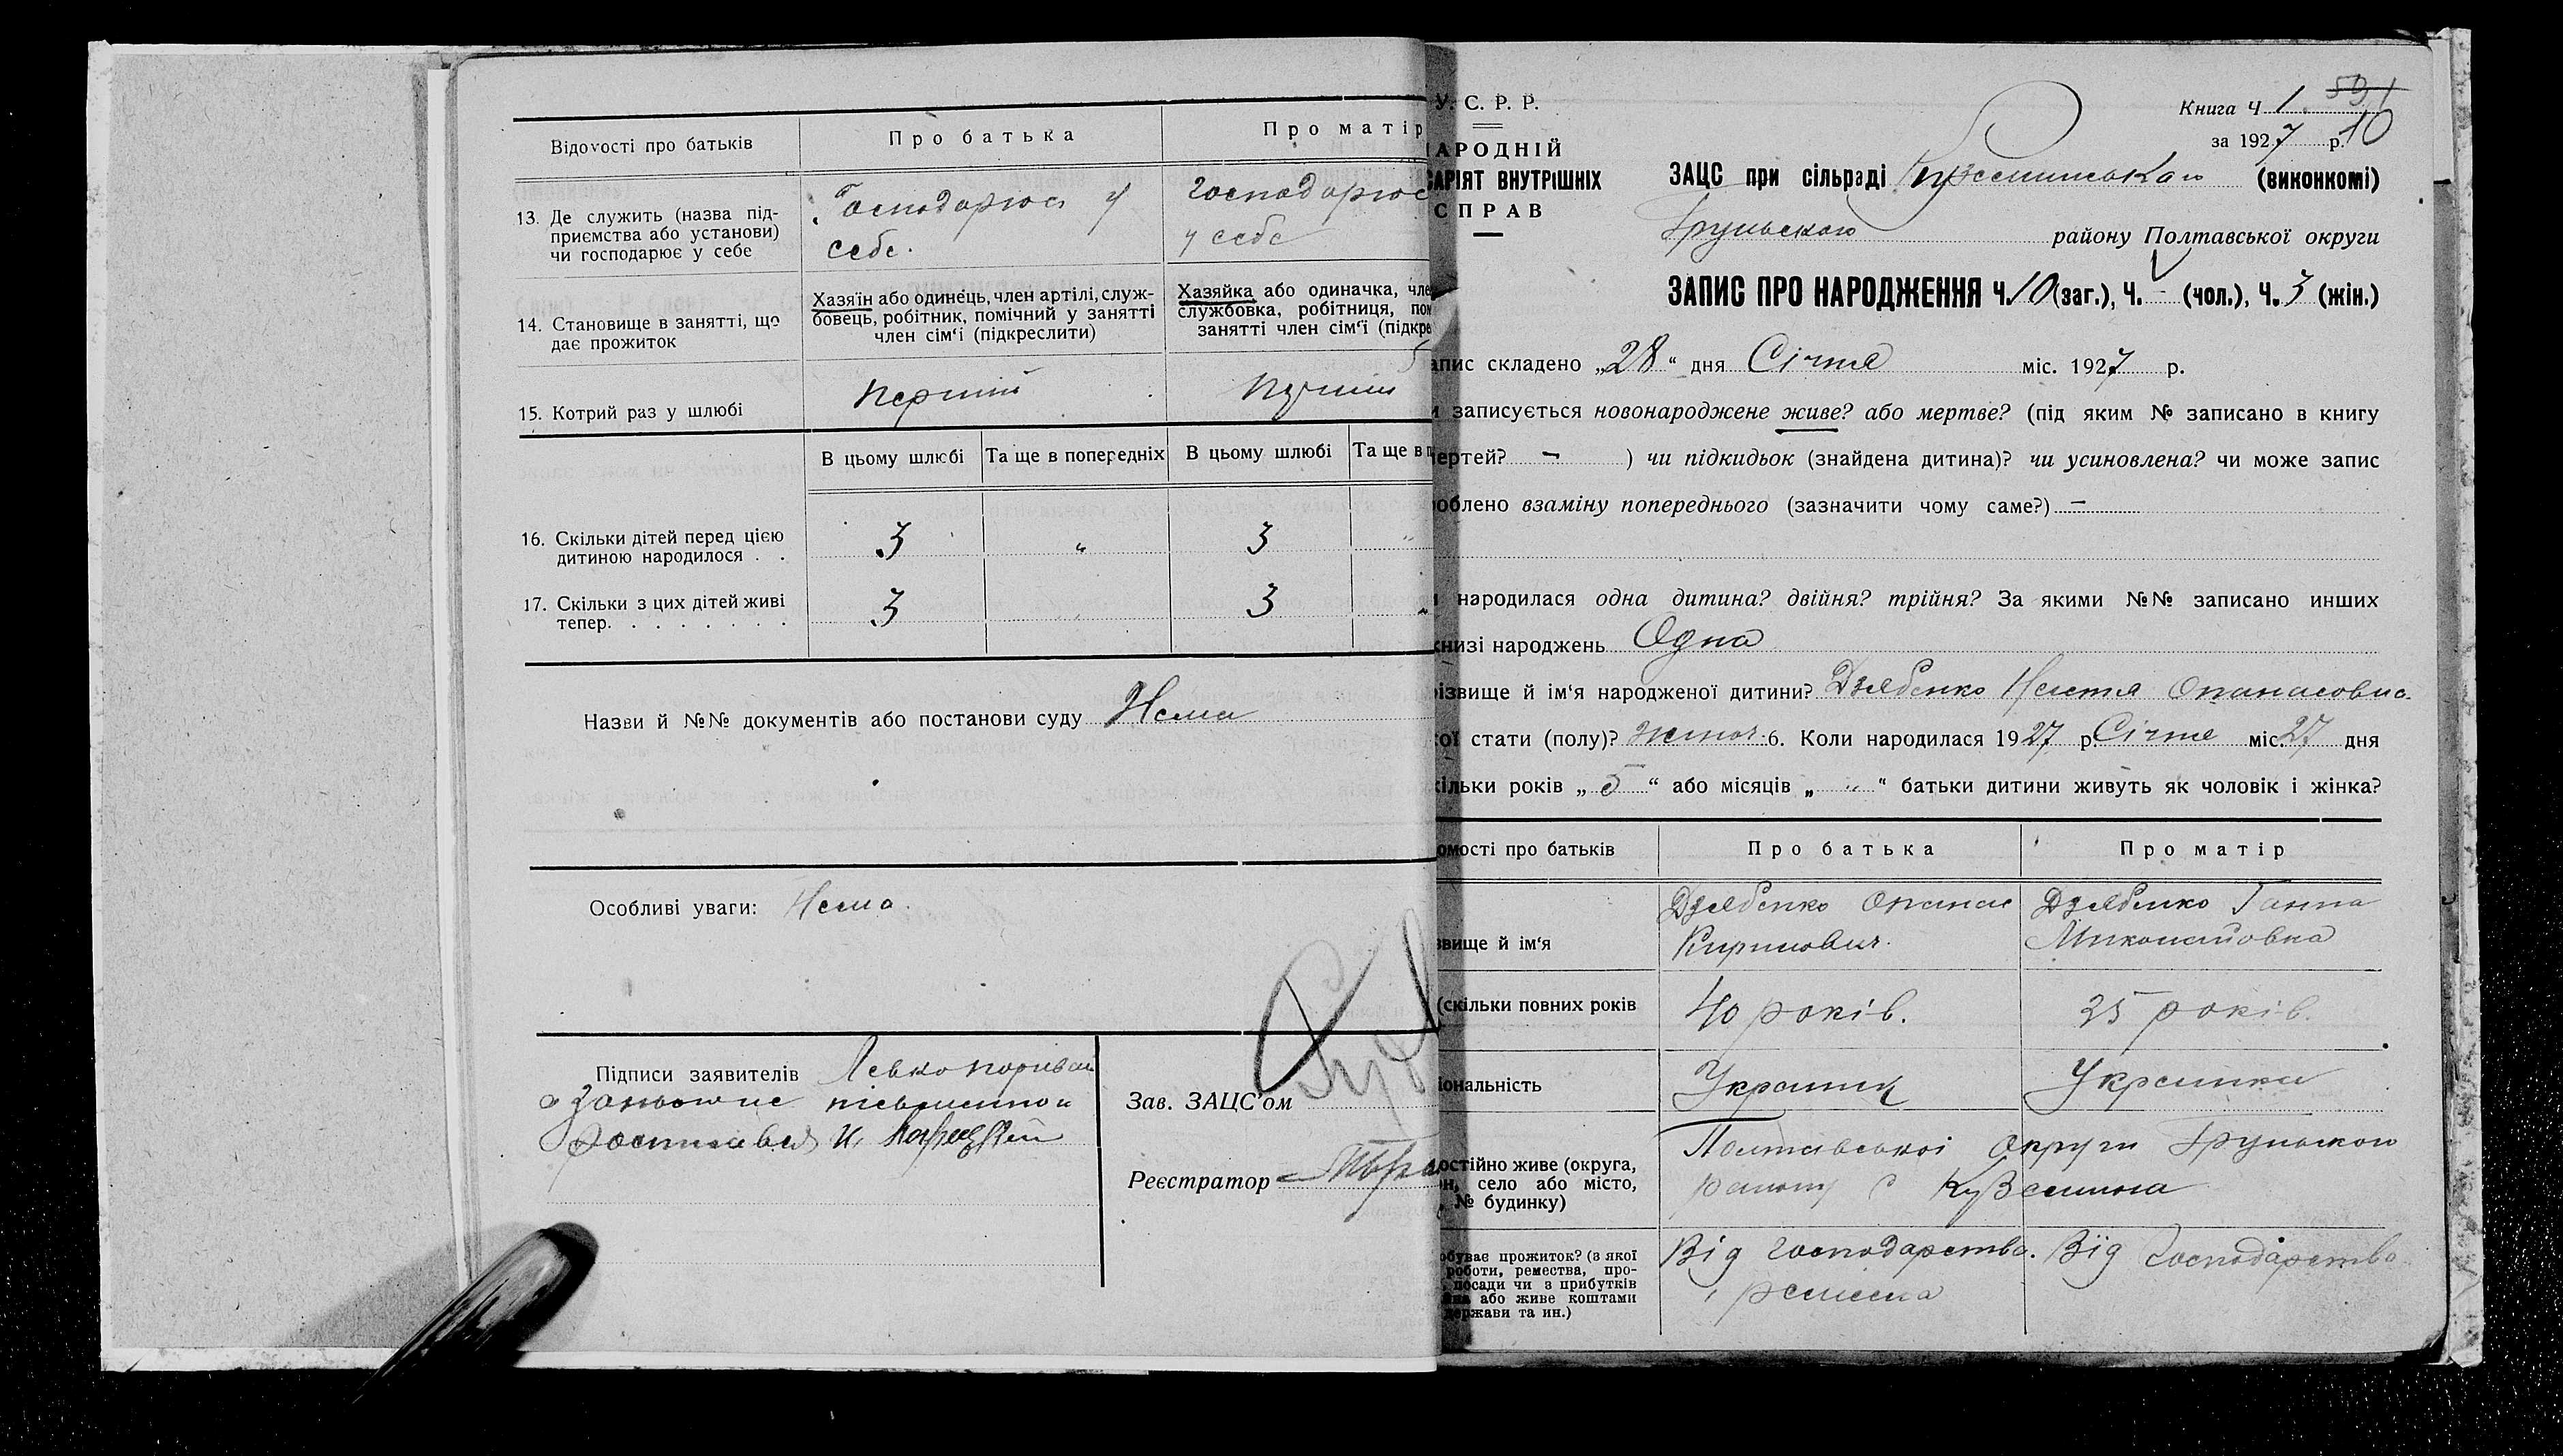 Відомості про батьків
Про батька
Про матір
13. Де служить (назва під-
приємства або установи)
чи господарює у себе
Господарює у
себе.
Господарює
у себе
14. Становище в занятті, що
дає прожиток
Хазяїн або одинець, член артілі, служ-
бовець, робітник, помічний у занятті
член сім'ї (підкреслити)
Хазяйка або одиначка, чле
службовка, робітниця, пом
занятті член сім'ї (підкре
15. Котрий раз у шлюбі
перший
перший
В цьому шлюбі
Та ще в попередніх
В цьому шлюбі
Та ще в п
16. Скільки дітей перед цією
дитиною народилося . .
3 " 3 "
17. Скільки з цих дітей живі
тепер. . . . . . . .
3 " 3 "
Назви й №№ документів або постанови суду Нема
Особливі уваги: Нема.
Підписи заявителів Левко
Зав. ЗАЦС'ом
Реєстратор
У. С. Р. Р.
АРОДНІЙ
АРІЯТ ВНУТРІШНІХ
СПРАВ
Книга Ч 1 591
за 1927 р. 10
ЗАЦС при сільраді (виконкомі)
Грунського району Полтавської округи
ЗАПИС ПРО НАРОДЖЕННЯ Ч. 10 (заг.), Ч. - (чол.), Ч. 3 (жін.)
апис складено „28“ дня Січня міс. 1927 р.
и записується новонароджене живе? або мертве? (під яким № записано в книгу
мертей? – ) чи підкидьок (знайдена дитина)? чи усиновлена? чи може запис
роблено взаміну попереднього (зазначити чому саме?) –
и народилася одна дитина? двійня? трійня? За якими №№ записано инших
книзі народжень Одна
різвище й ім'я народженої дитини? Дзябенко Настя Опанасовна.
кої стати (полу)? жіноч. 6. Коли народилася 1927 р. Січня міс. 27 дня
кільки років „5“ або місяців „ " “ батьки дитини живуть як чоловік і жінка?
омості про батьків
Про батька
Про матір
звище й ім'я
Дзябенко Опанас
Кирилович.
Дзябенко Ганна
Миколаївна
(скільки повних років
40 років.
25 років.
іональність
Українец
Українка
остійно живе (округа,
н, село або місто,
№ будинку)
Полтавської Округи Грунского
району с
обуває прожиток? (з якої
роботи, ремества, про-
, посади чи з прибутків
йна або живе коштами
держави та ин.)
Від господарства.
Від господарства